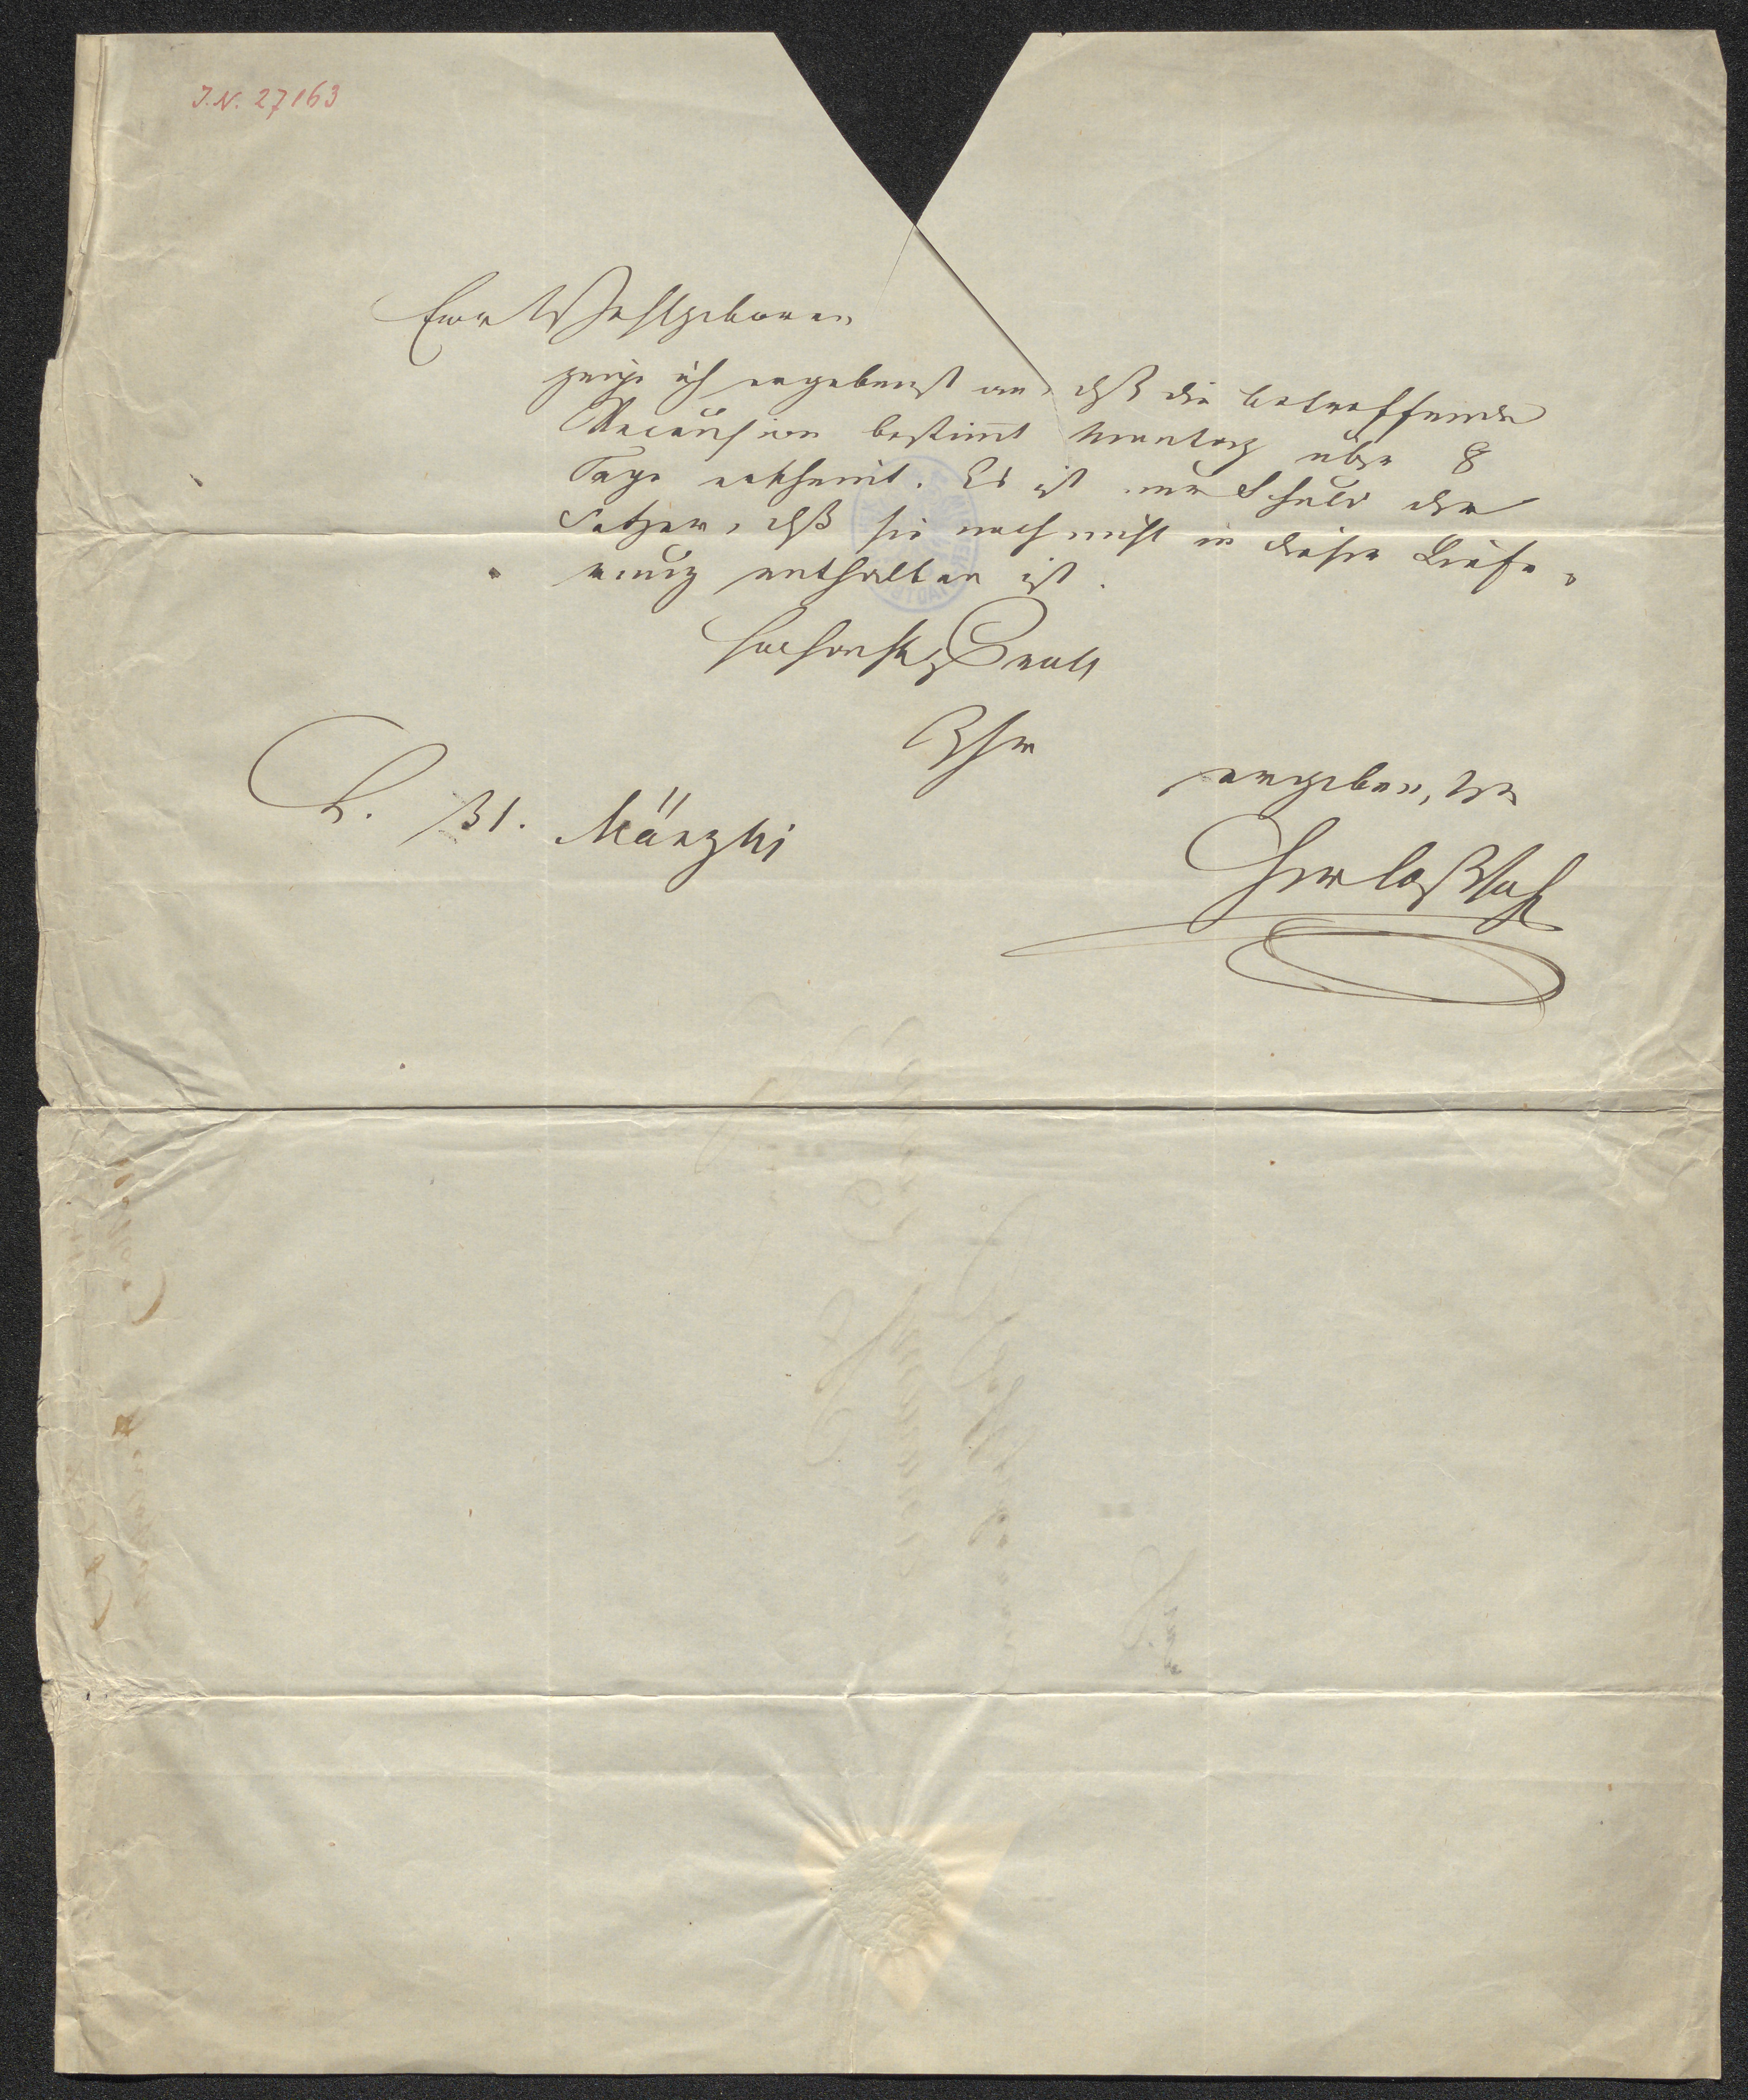 J. N. 27163
Euer Wohlgeboren
zeige ich ergebenst an, daß die betreffende
Recension bestimt Montag über 8
Tage erscheint. Es ist nur Schuld der
Setzer, daß sie noch nicht in dieser Liefe-
rung enthalten ist.
Hochachtungsvoll
Ihr
ergebenster
L. 31. März
Herloßsohn